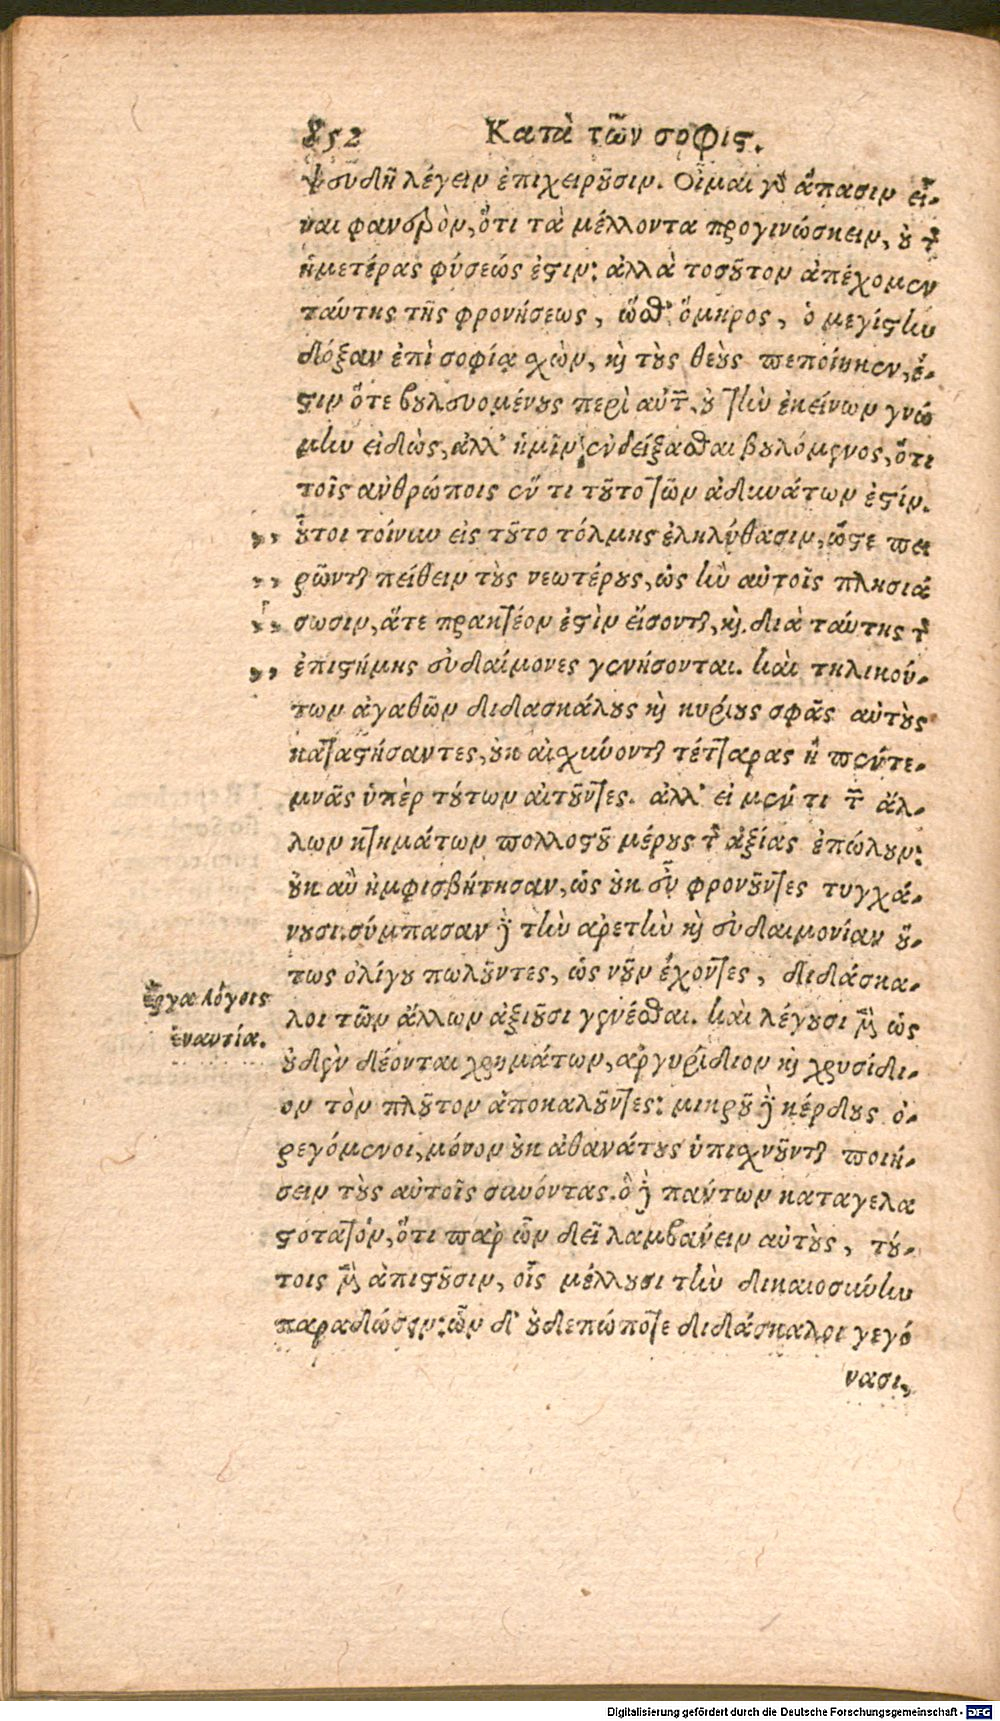 852 Κατὰ τῶν σοφις.
ψευδῆ λέγειν ἐπιχειροῦσιν. Οἶμαι γὸ ἅπασιν εἶ-
ναι φανερὸν, ὅτι τὰ μέλλοντα προγινώσκειν, οὐ τῆς
ἡμετέρας φύσεώς ἐστιν: ἀλλὰ τοσοῦτον ἀπέχομεν
ταύτης τῆς φρονήσεως, ὥσθ' ὅμηρος, ὁ μεγίστην
δόξαν ἐπὶ σοφίᾳ σχὼν, καὶ τοὺς θεοὺς πεποίηκεν, ἔ-
στιν ὅτε βουλευομένους περὶ αὐτῶν, οὐ τὴν ἐκείνων γνώ
μην εἰδὼς, ἀλλ' ἡμῖν ἐνδείξασθαι βουλόμενος, ὅτι
τοῖς ἀνθρώποις ἕν τι τοῦτο τῶν ἀδυνάτων ἐστίν.
,, οὗτοι τοίνυν εἰς τοῦτο τόλμης ἐληλύθασιν, ὥστε πει
,, ρῶνται πείθειν τοὺς νεωτέρους, ὡς ἢν αὐτοῖς πλησιά
,, σωσιν, ἅτε πρακτέον ἐστὶν εἴσονται, καὶ διὰ ταύτης τῆς
,, ἐπιστήμης εὐδαίμονες γενήσονται. καὶ τηλικού-
των ἀγαθῶν διδασκάλους καὶ κυρίους σφᾶς αὐτοὺς
καταστήσαντες, οὐκ αἰσχύνονται τέτταρας ἢ πέντε
μνᾶς ὑπὲρ τούτων αἰτοῦντες. ἀλλ' εἰ μέν τι τῶν ἄλ-
λων κτημάτων πολλοστοῦ μέρους τῆς ἀξίας ἐπώλουν:
οὐκ ἂν ἠμφισβήτησαν, ὡς οὐκ εὖ φρονοῦντες τυγχά-
νουσι. σύμπασαν δὲ τὴν ἀρετὴν καὶ εὐδαιμονίαν οὕ-
τως ὀλίγου πωλοῦντες, ὡς νοῦν ἔχοντες, διδάσκα-
λοι τῶν ἄλλων ἀξιοῦσι γενέσθαι. καὶ λέγουσι μὲν ὡς
οὐδὲν δέονται χρημάτων, ἀργυρίδιον καὶ χρυσίδι-
ον τὸν πλοῦτον ἀποκαλοῦντες: μικροῦ δὲ κέρδους ὀ-
ρεγόμενοι, μόνον οὐκ ἀθανάτους ὑπισχνοῦνται ποιή-
σειν τοὺς αὐτοῖς συνόντας. ὃ δὲ πάντων καταγελα
στότατον, ὅτι παρ' ὧν δεῖ λαμβάνειν αὐτοὺς, τού-
τοις μὲν ἀπιστοῦσιν, οἷς μέλλουσι τὴν δικαιοσύνην
παραδώσειν: ὧν δ' οὐδεπώποτε διδάσκαλοι γεγό
νασι,
ἔργα λόγοις
ἐναντία.
Digitalisierung gefördert durch die Deutsche Forschungsgemeinschaft - DFG